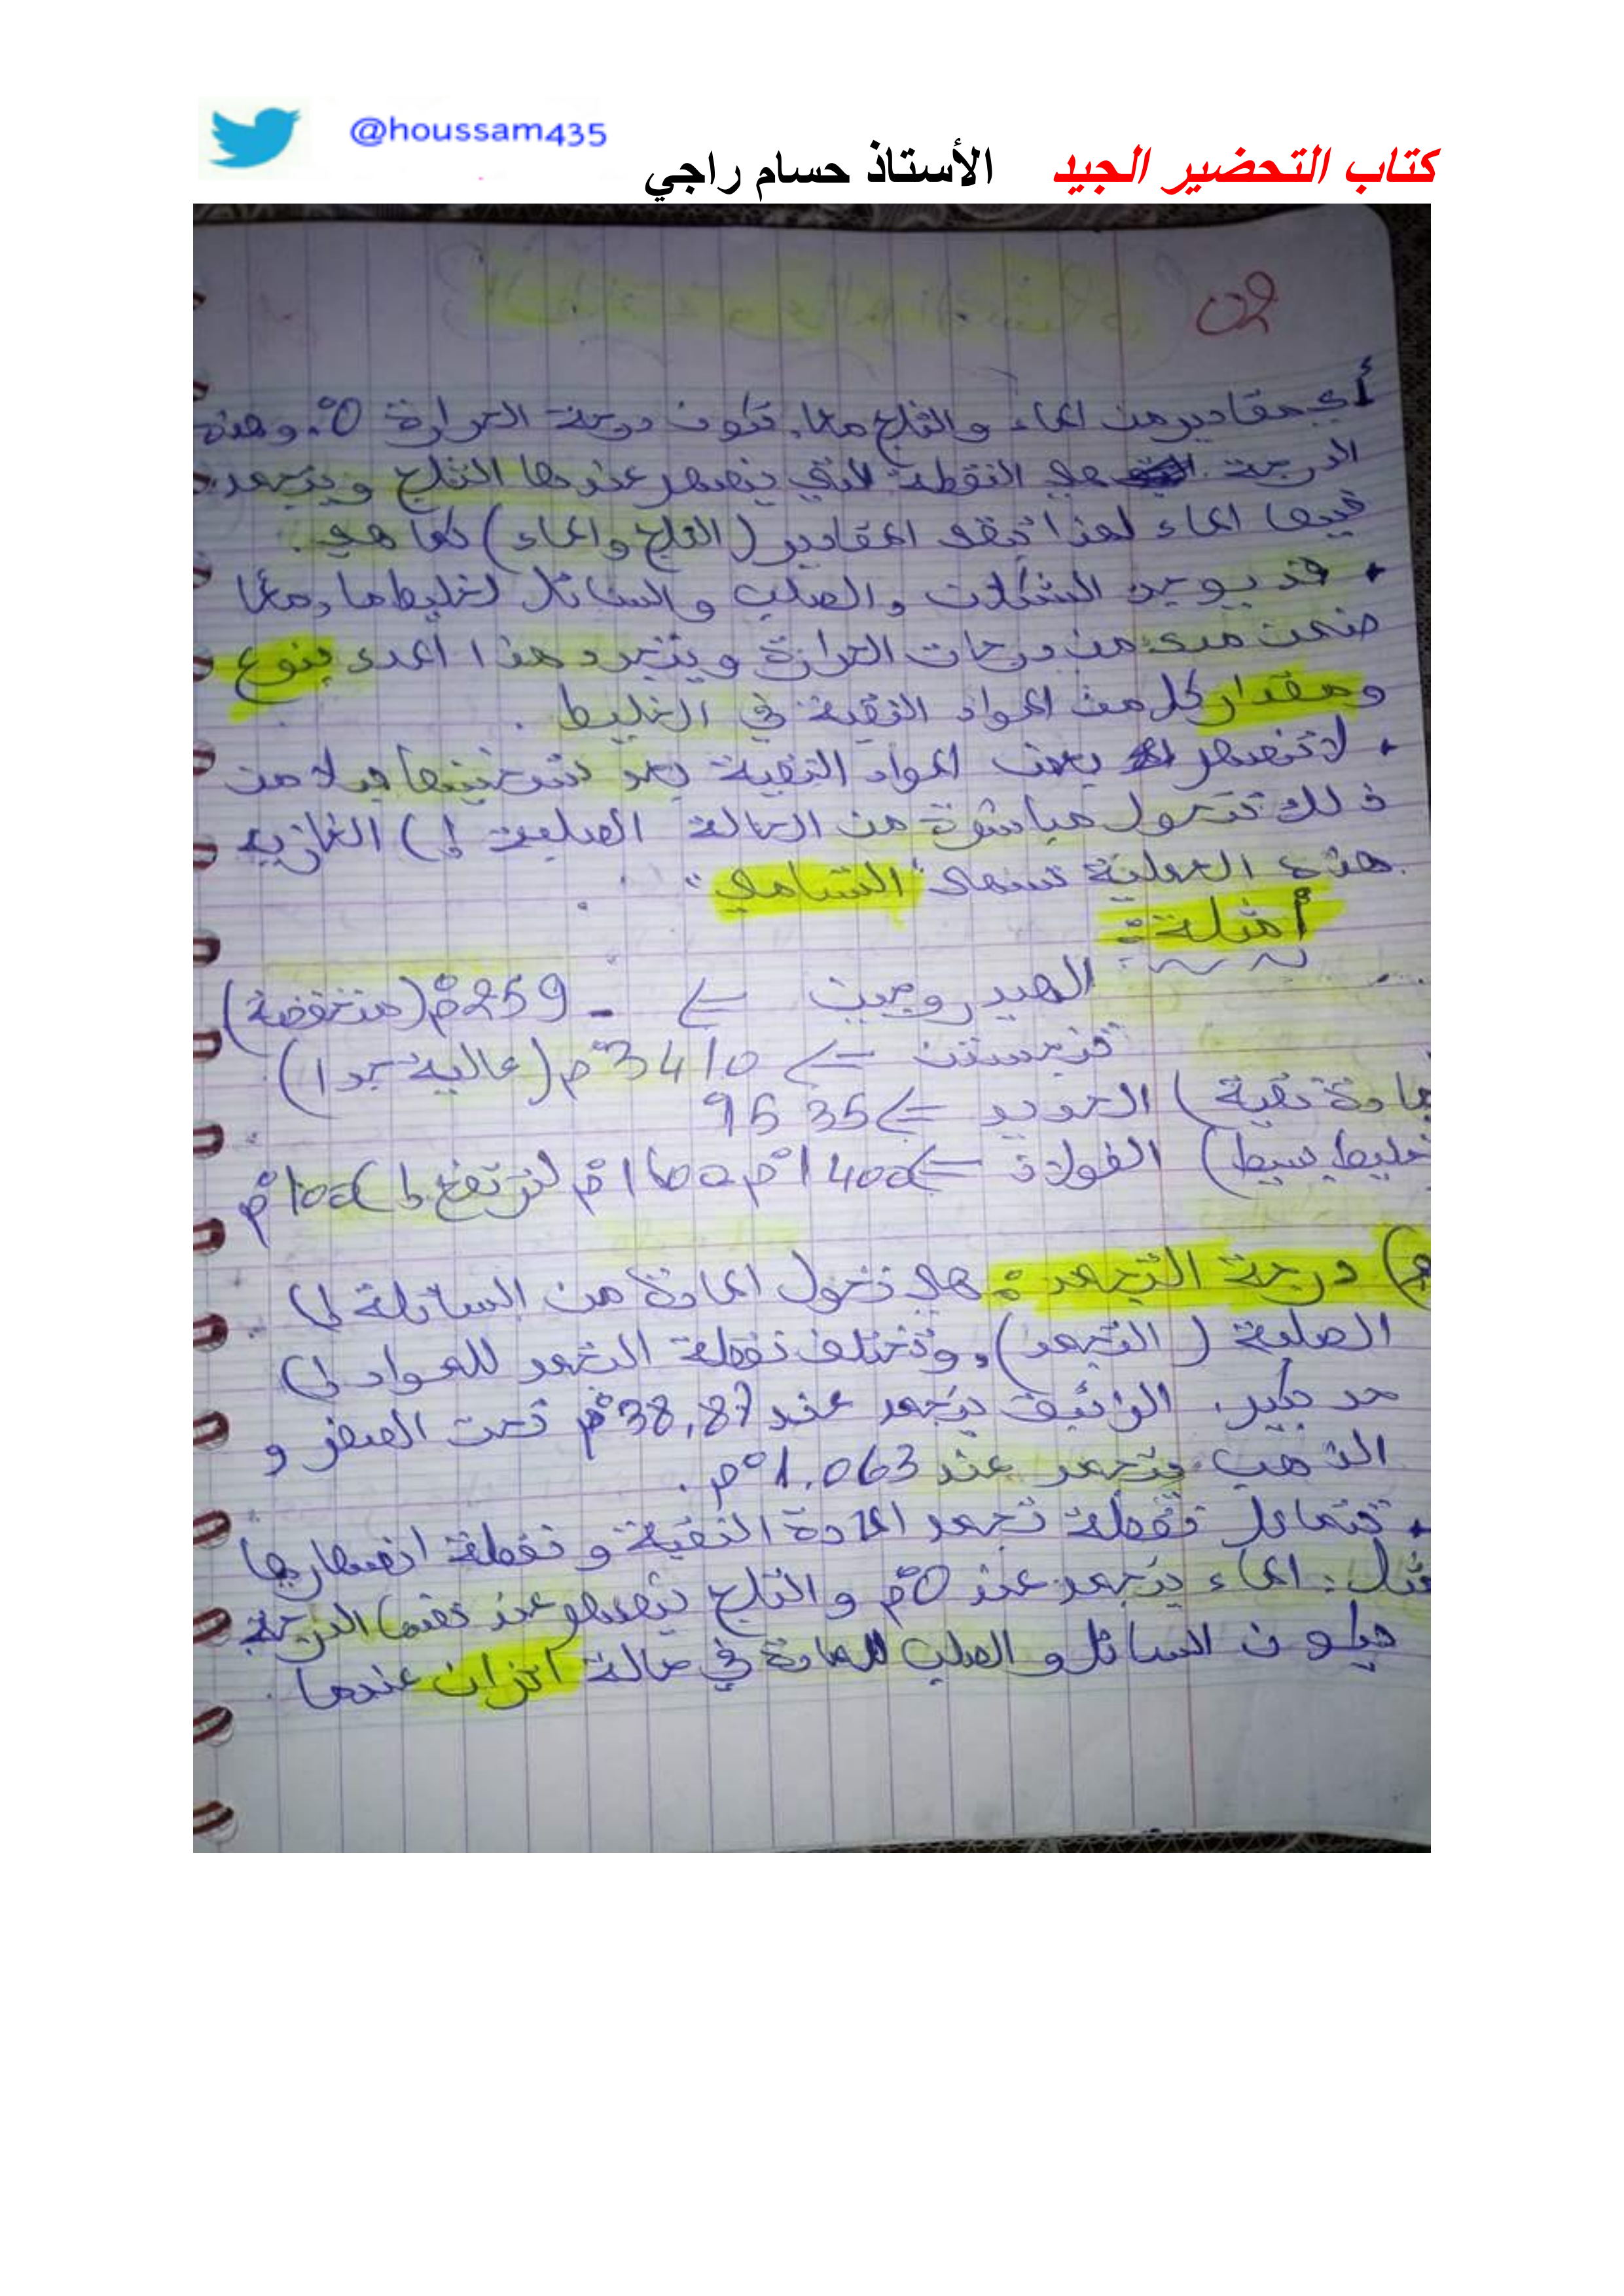 @houssam435
كتاب التحضير الجيد الأستاذ حسام راجي
02
أي مقادير من الماء والثلج معا. تكون درجة الحرارة 0°. وهذه
الدرجة هي النقطة التي ينصهر عندها الثلج ويتجمد
فيها الماء لهذا تبقى المقادير (الثلج والماء) كما هي.
• قد يوجد الشكلان والصلب والسائل لخليط ما، معًا
ضمن مدى من درجات الحرارة ويتحدد هذا المدى بنوع
ومقدار كل من المواد النقية في الخليط.
• لا تنصهر بعض المواد النقية بعد تسخينها بدلا من
ذلك تتحول مباشرة من الحالة الصلبة إلى الغازية
هذه العملية تسمى "التسامي".
أمثلة:
الهيدروجين => - 259°م (منخفضة)
تنجستن => 3410°م (عالية جدا)
مادة نقية) الحديد => 1535
خليط بسيط) الفولاذ => 1400°م لترتفع إلى
م) درجة التجمد: هي تحول المادة من السائلة إلى
الصلبة (التجمد)، وتختلف نقطة التجمد للمواد إلى
حد كبير. الزئبق يتجمد عند 38,87°م تحت الصفر و
الذهب يتجمد عند 1.063°م.
• تتماثل نقطة تجمد المادة النقية و نقطة انصهارها
مثل: الماء يتجمد عند 0°م والثلج ينصهر عند نفس الدرجة
فيكون السائل و الصلب للمادة في حالة اتزان عندها.